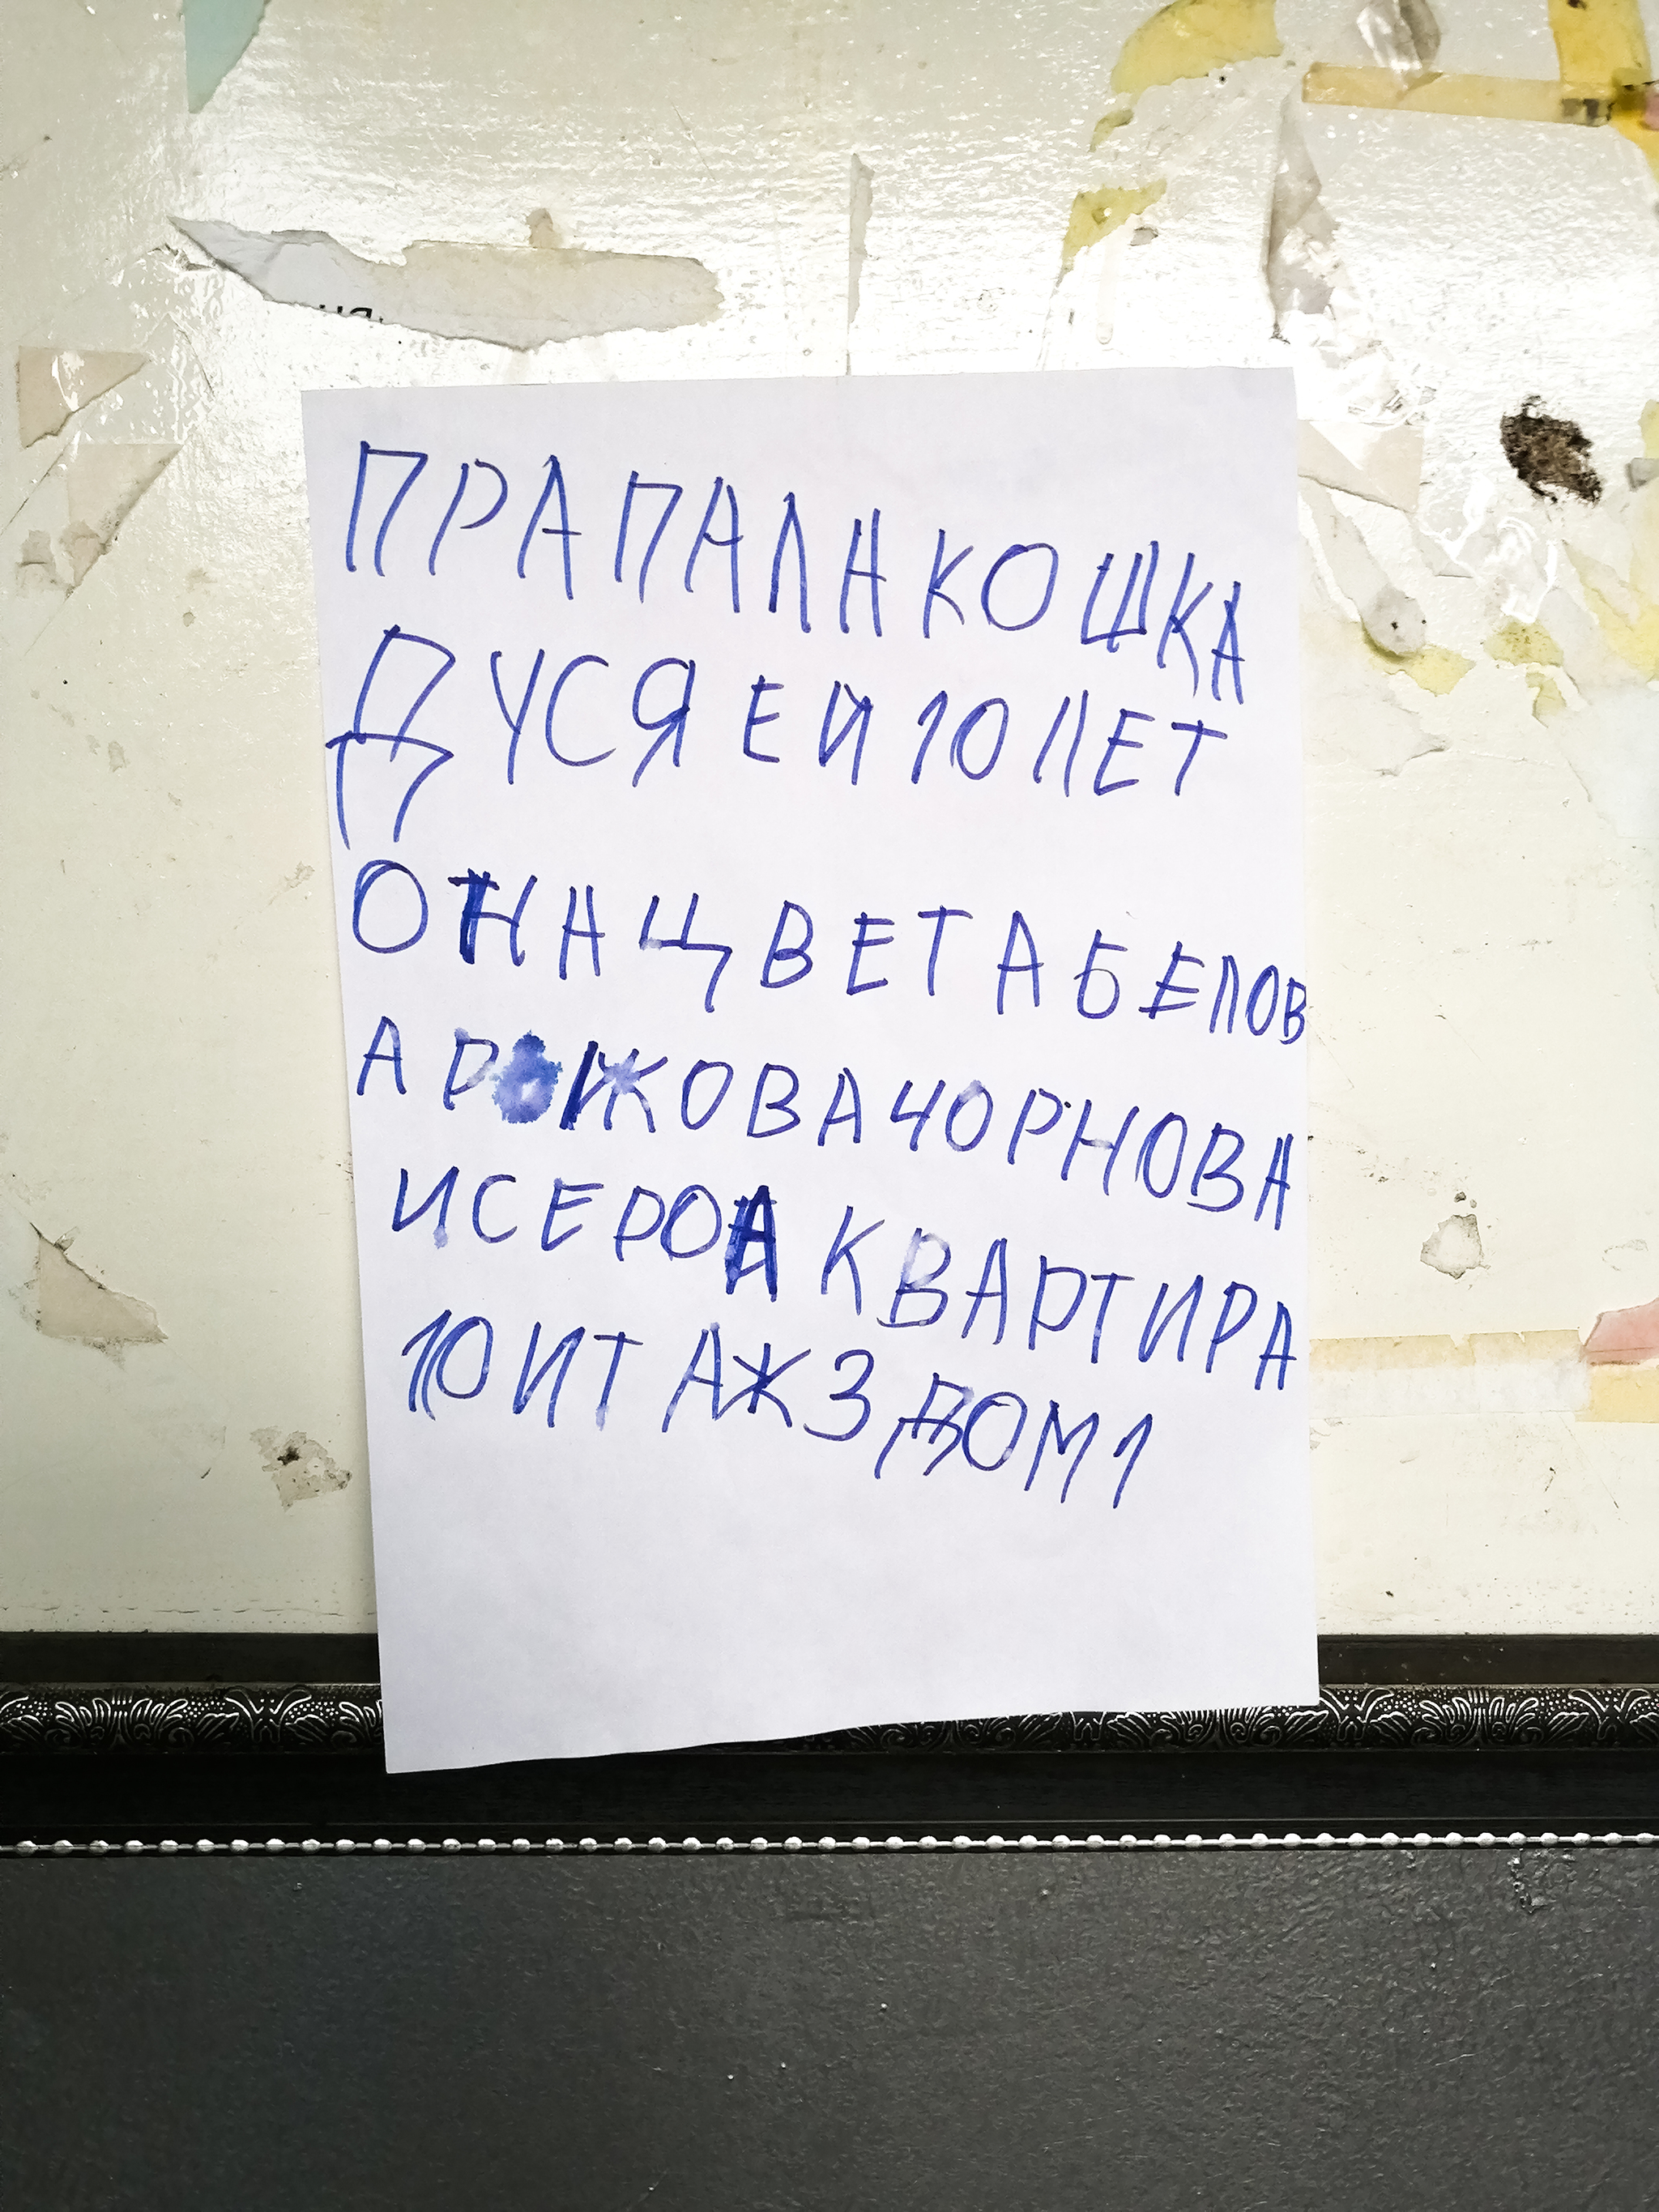 ПРАПАЛА КОШКА
ДУСЯ ЕЙ 10 ЛЕТ
ОНА ЦВЕТА БЕЛОВ
А РЫЖОВА ЧОРНОВА
И СЕРОА КВАРТИРА
10 ИТАЖ 3 ДОМ 1